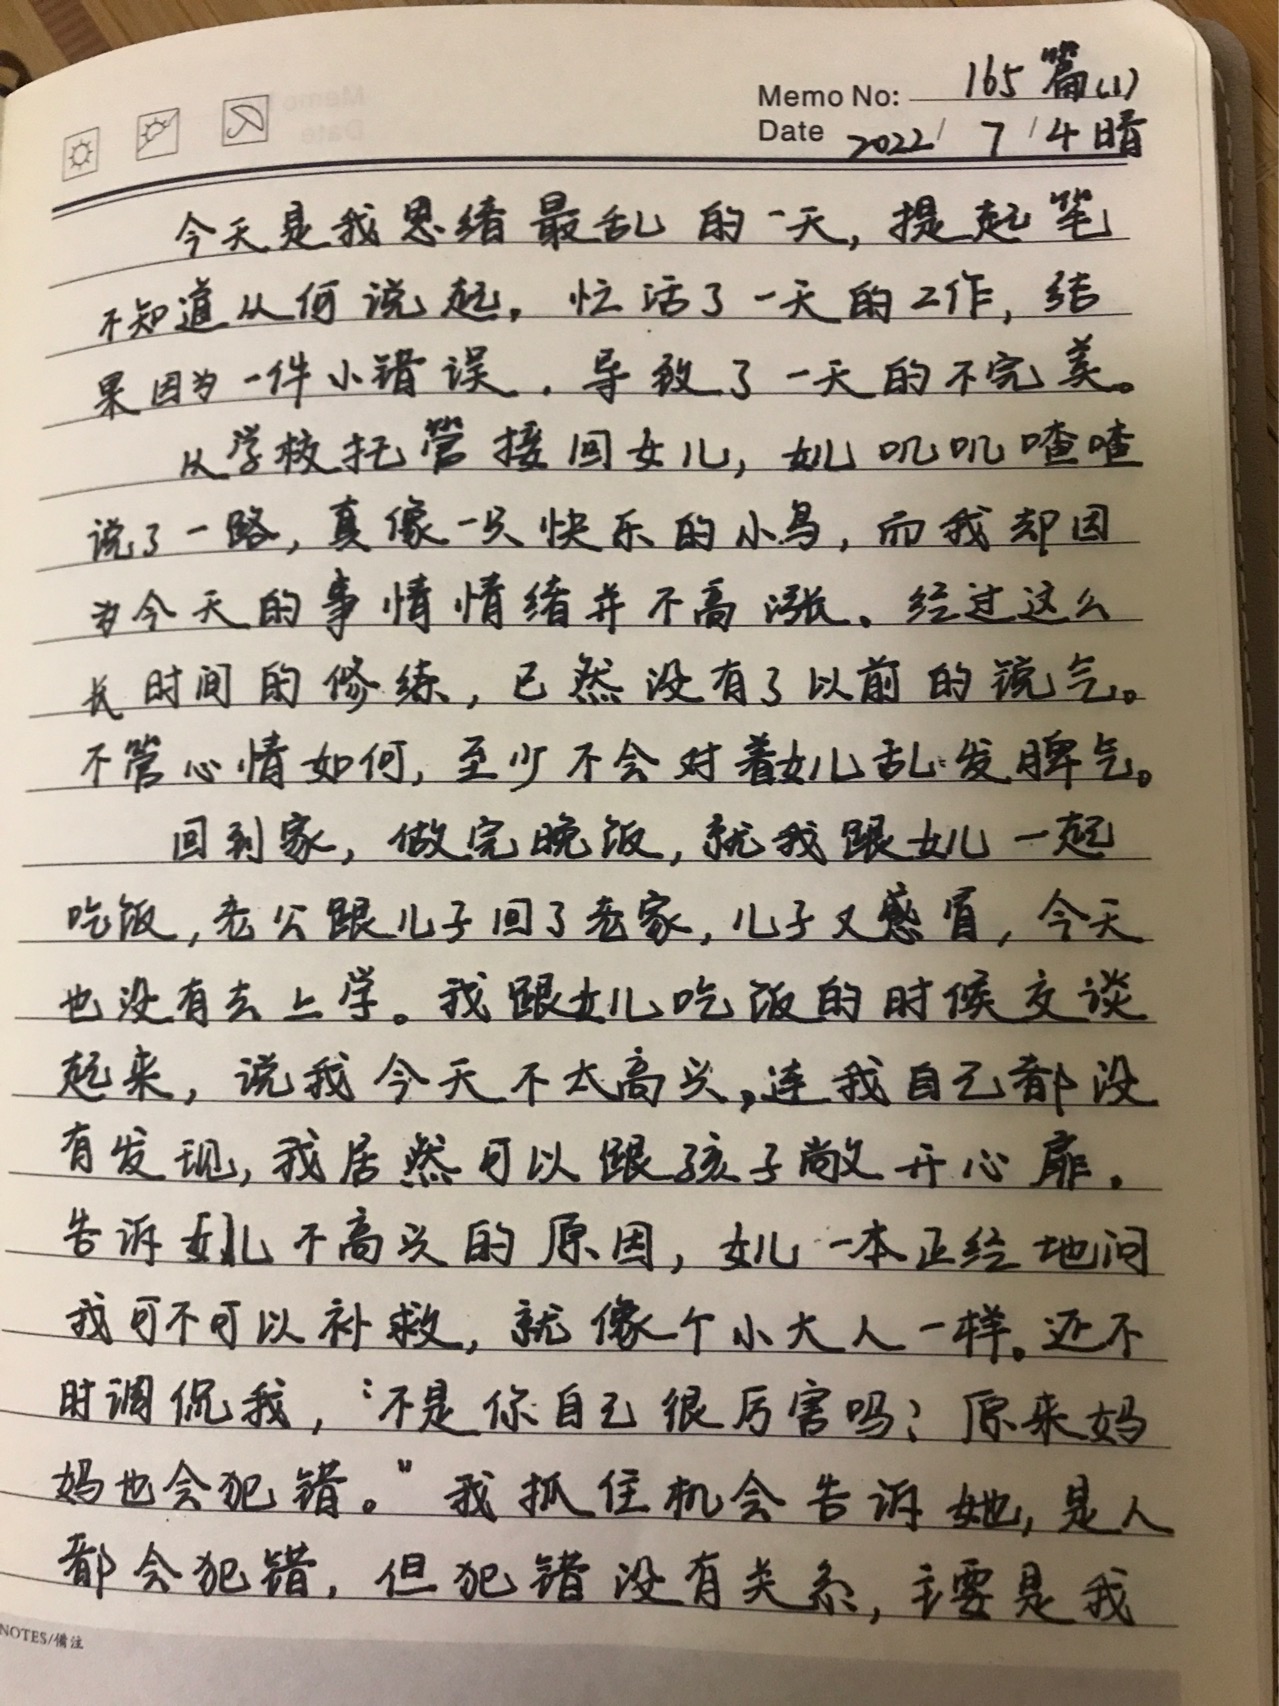 Memo No: 165篇(1)
Date 2022/7/4晴
今天是我思绪最乱的一天，提起笔
不知道从何说起。忙活了一天的工作，结
果因为一件小错误，导致了一天的不完美。
从学校托管接回女儿，女儿叽叽喳喳
说了一路，真像一只快乐的小鸟，而我却因
为今天的事情情绪并不高涨。经过这么
长时间的修练，已然没有了以前的锐气。
不管心情如何，至少不会对着女儿乱发脾气。
回到家，做完晚饭，就我跟女儿一起
吃饭，老公跟儿子回了老家，儿子又感冒，今天
也没有去上学。我跟女儿吃饭的时候交谈
起来，说我今天不太高兴，连我自己都没
有发现，我居然可以跟孩子敞开心扉。
告诉女儿不高兴的原因，女儿一本正经地问
我可不可以补救，就像个小大人一样。还不
时调侃我，“不是你自己很厉害吗？原来妈
妈也会犯错。”我抓住机会告诉她，是人
都会犯错，但犯错没有关系，主要是我
NOTES/備注